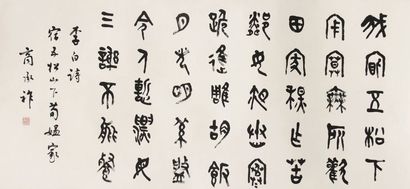 我宿五松下
寂寥無所歡
田家秋作苦
鄰女夜舂寒
跪進雕胡飯
月光明素盤
令人慙漂母
三謝不能餐
李白詩
宿五松山下荀媼家
商承祚